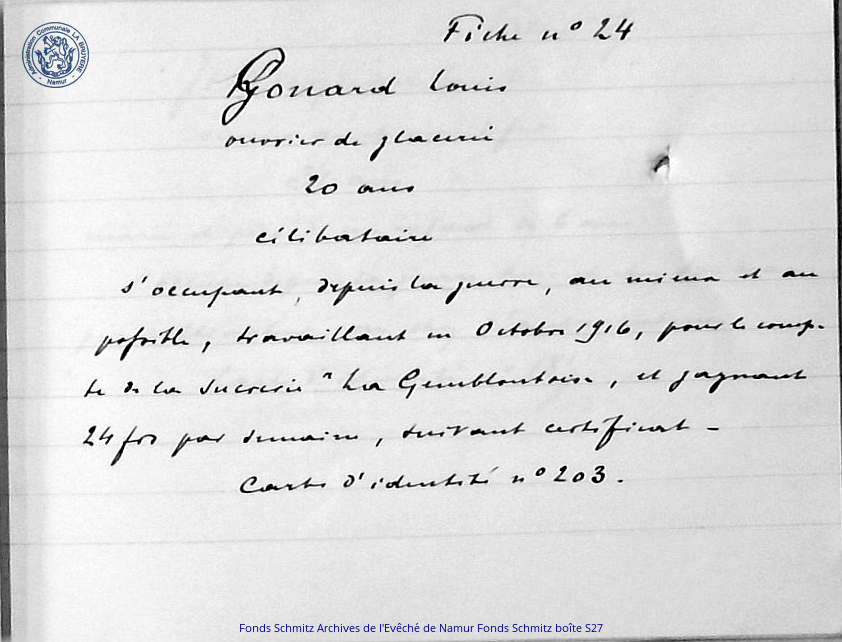 Administration Communale LA BRUYERE
- Namur -
Fiche n° 24
Gonard Louis
ouvrier de glacerie
20 ans
célibataire
s'occupant, depuis la guerre, au mieux et au
possible, travaillant en Octobre 1916, pour le comp-
te de la sucrerie "La Gembloutoise, et gagnant
24 frs par semaine, suivant certificat -
Carte d'identité n° 203.
Fonds Schmitz Archives de l'Evêché de Namur Fonds Schmitz boîte S27